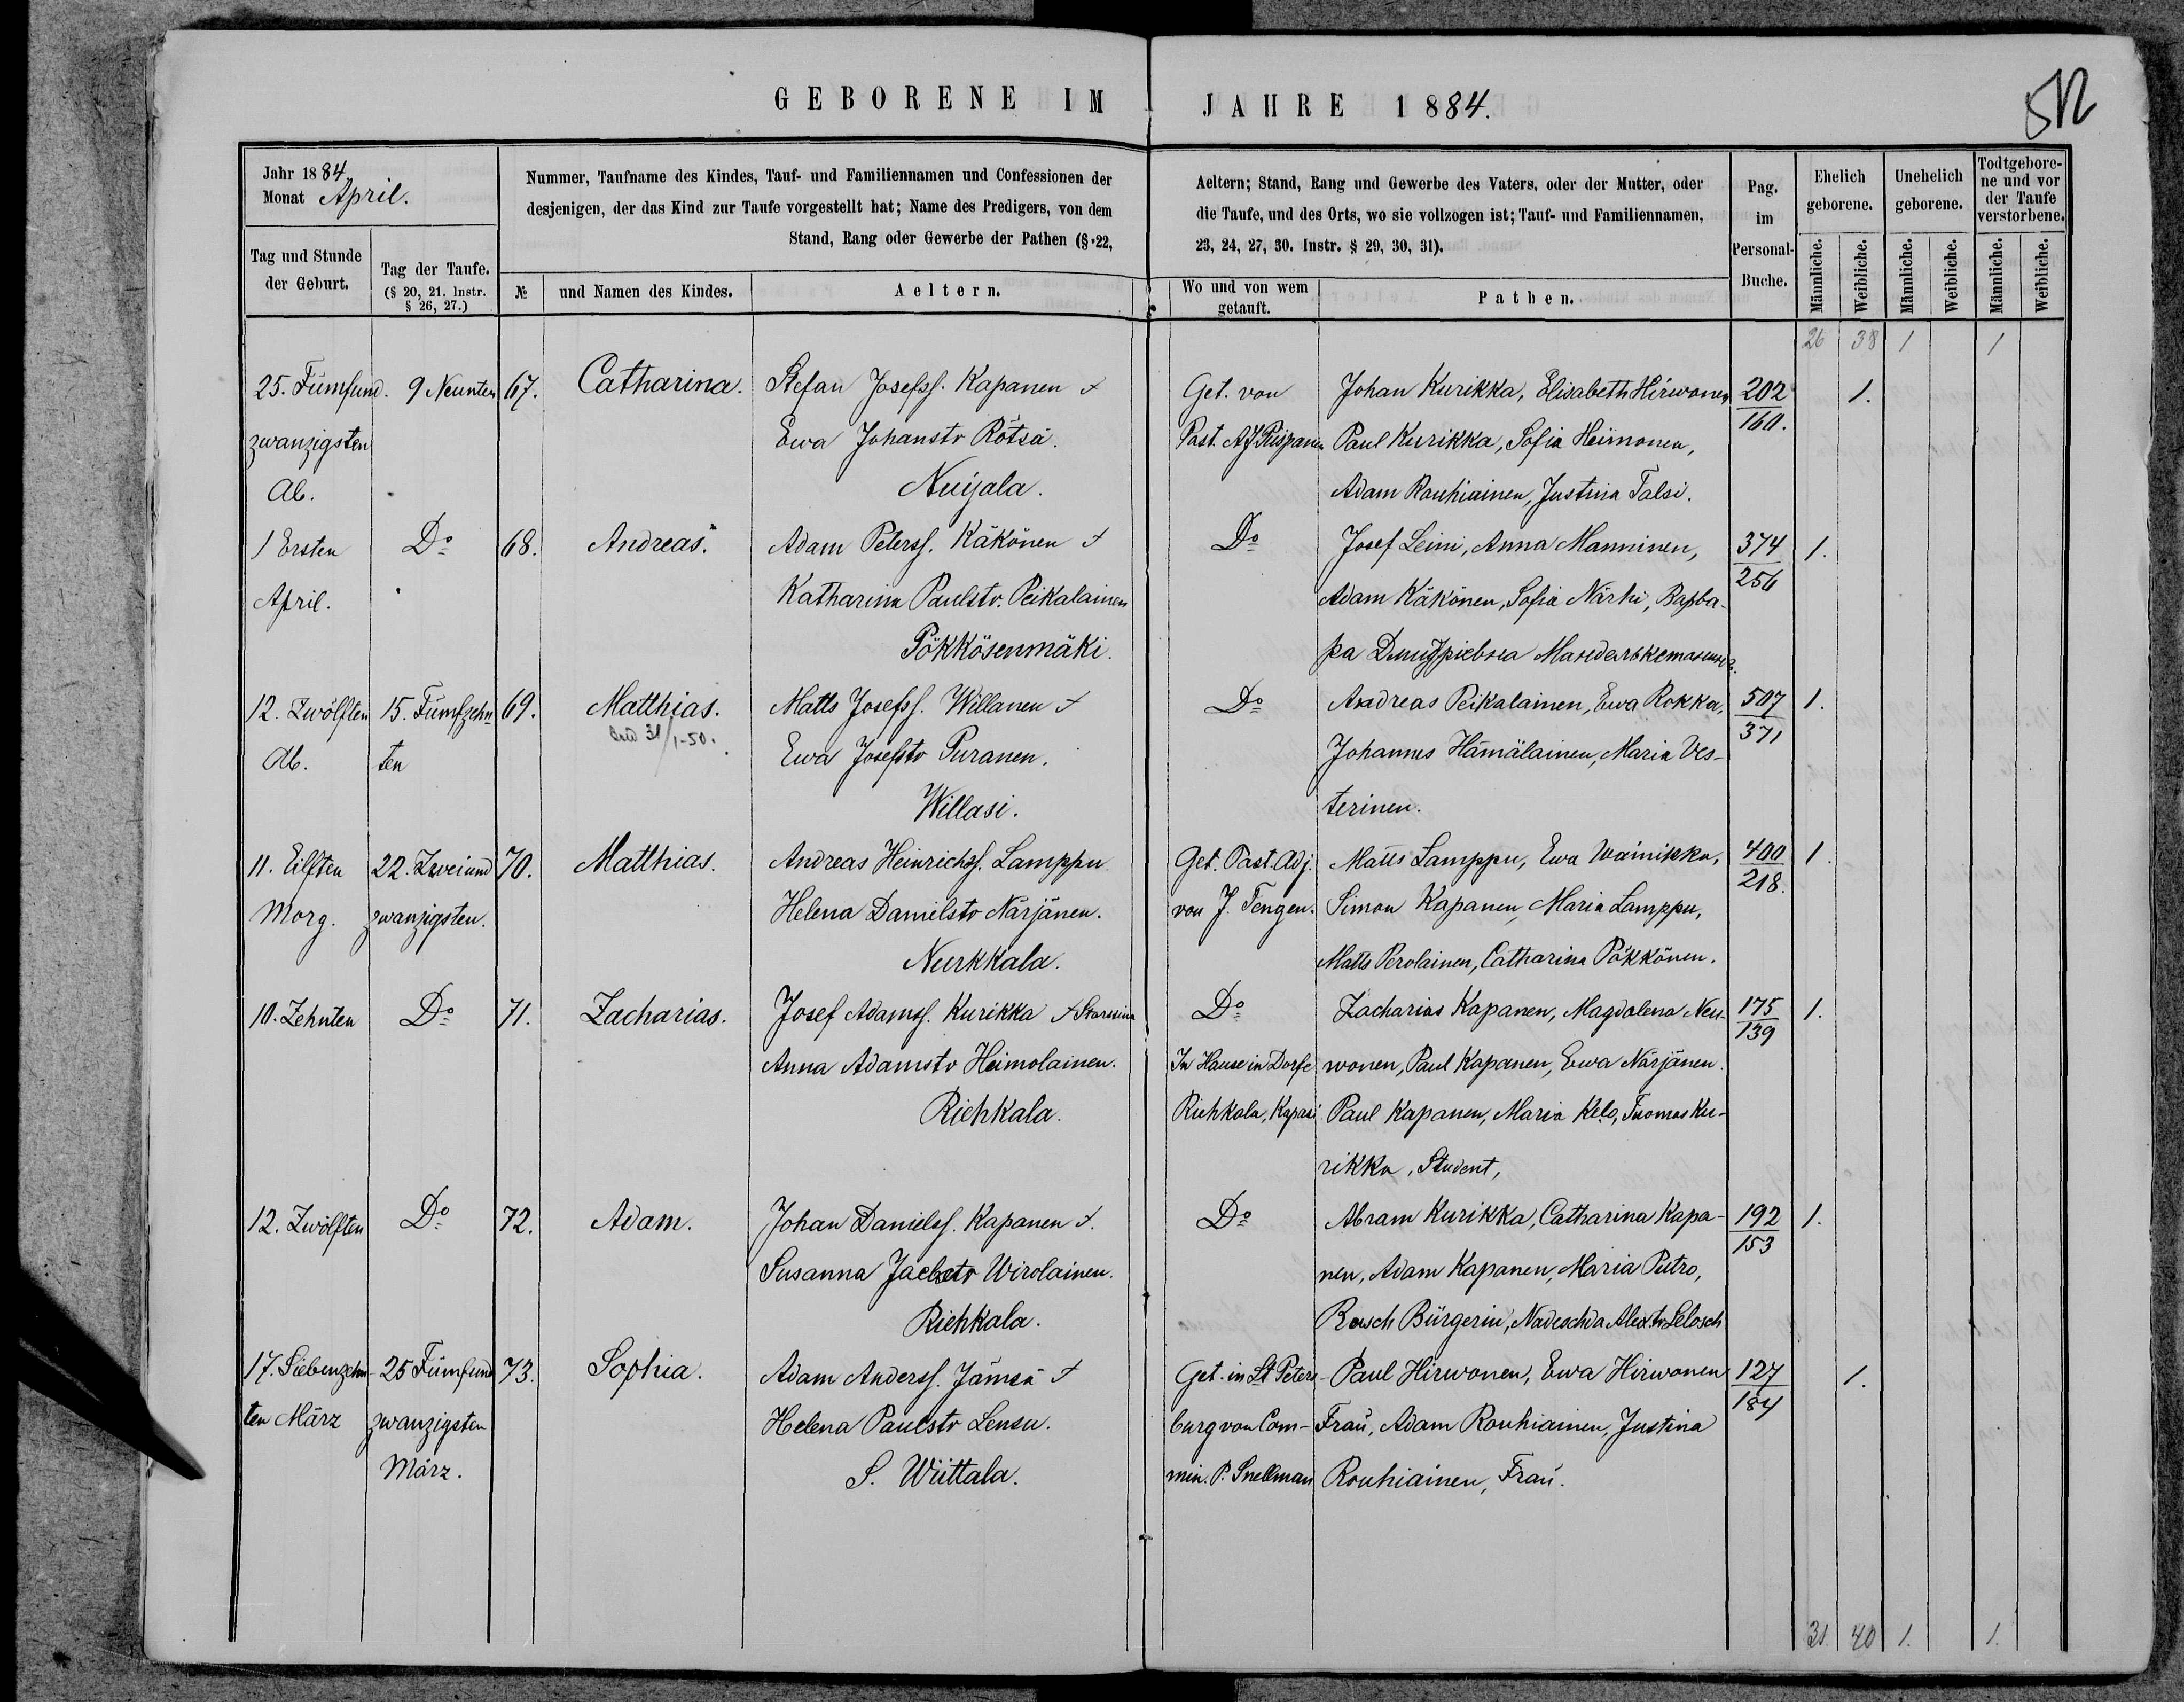 GEBORENE IM JAHRE 1884.
512
Jahr 1884
Monat April.
Tag und Stunde der Geburt.
Tag der Taufe. (§ 20, 21. Instr. § 26, 27.)
Nummer, Taufname des Kindes, Tauf- und Familiennamen und Confessionen der
desjenigen, der das Kind zur Taufe vorgestellt hat; Name des Predigers, von dem
Stand, Rang oder Gewerbe der Pathen (§.22,
№ und Namen des Kindes. Aeltern.
Aeltern; Stand, Rang und Gewerbe des Vaters, oder der Mutter, oder
die Taufe, und des Orts, wo sie vollzogen ist; Tauf- und Familiennamen,
23, 24, 27, 30. Instr. § 29, 30, 31).
Wo und von wem getauft. Pathen.
Pag. im Personal-Buche.
Ehelich geborene. Unehelich geborene. Todtgeborene und vor der Taufe verstorbene.
Männliche. Weibliche. Männliche. Weibliche. Männliche. Weibliche.
26 38 1 1
25. Fümfund. 9 Neunten 67. Catharina. Stefan Josefss. Kapanen Get. von Johan Kurikka, Elisabeth Hirwonen 202 1.
zwanzigsten Ewa Johanstr Rötsä. Past. AJ Piispanen Paul Kurikka, Sofia Heimonen, 160.
Ab. Nuijala. Adam Rouhiainen, Justina Talsi.
1 Ersten Do 68. Andreas. Adam Peterss. Käkönen Do Josef Leini, Anna Manninen, 374 1.
April. Katharina Paulstr. Peikalainen Adam Käkönen, Sofia Närhi, 256
Pökkösenmäki.
12. Zwölften 15. Fümfzehn 69. Matthias. Matts Josefss. Willanen Do Andreas Peikalainen, Ewa Rokka, 507 1.
31/1-50.
Ab. ten Ewa Josefstr Puranen. Johannes Hämäläinen, Maria Ves- 371
Willasi. terinen.
11. Eilften 22. Zweiund 70. Matthias. Andreas Heinrichss. Lamppu Get. Past. Adj. Matts Lamppu, Ewa Wainikka, 400 1.
Morg. zwanzigsten. Helena Danielstr Närjänen. von J. Tengen. Simon Kapanen, Maria Lamppu, 218.
Nurkkala. Matts Perolainen, Catharina Pökkönen.
10. Zehnten Do 71. Zacharias. Josef Adamss. Kurikka Do Zacharias Kapanen, Magdalena Neu- 175 1.
Anna Adamstr Heimolainen. In Hause in Dorfe wonen, Paul Kapanen, Ewa Närjänen. 139
Riehkala. Riehkala, Kapasi Paul Kapanen, Maria Kelo, Thomas Ku-
rikka, Student,
12. Zwölften Do 72. Adam. Johan Danielss. Kapanen Do Abram Kurikka, Catharina Kapa- 192 1.
Susanna Wirolainen. nen, Adam Kapanen, Maria Putro, 153
Riehkala. Bürgerin, Nadeschda
17. Siebenzehn- 25 Fümfund 73. Sophia. Adam Anderss. Jämsä Get. in St Peters- Paul Hirwonen, Ewa Hirwonen 127 1.
ten März zwanzigsten Helena Paulstr Lensu. burg von Com- Frau, Adam Rouhiainen, Justina 184
März. S. Wiittala. min. P. Snellman Rouhiainen, Frau.
31. 40 1. 1.